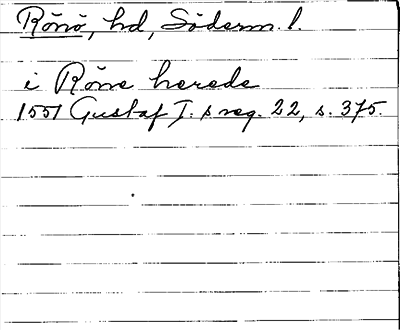 Rönö, hd, Söderm. l.
i Röne herede
1551 Gustaf I. s reg. 22, s. 375.